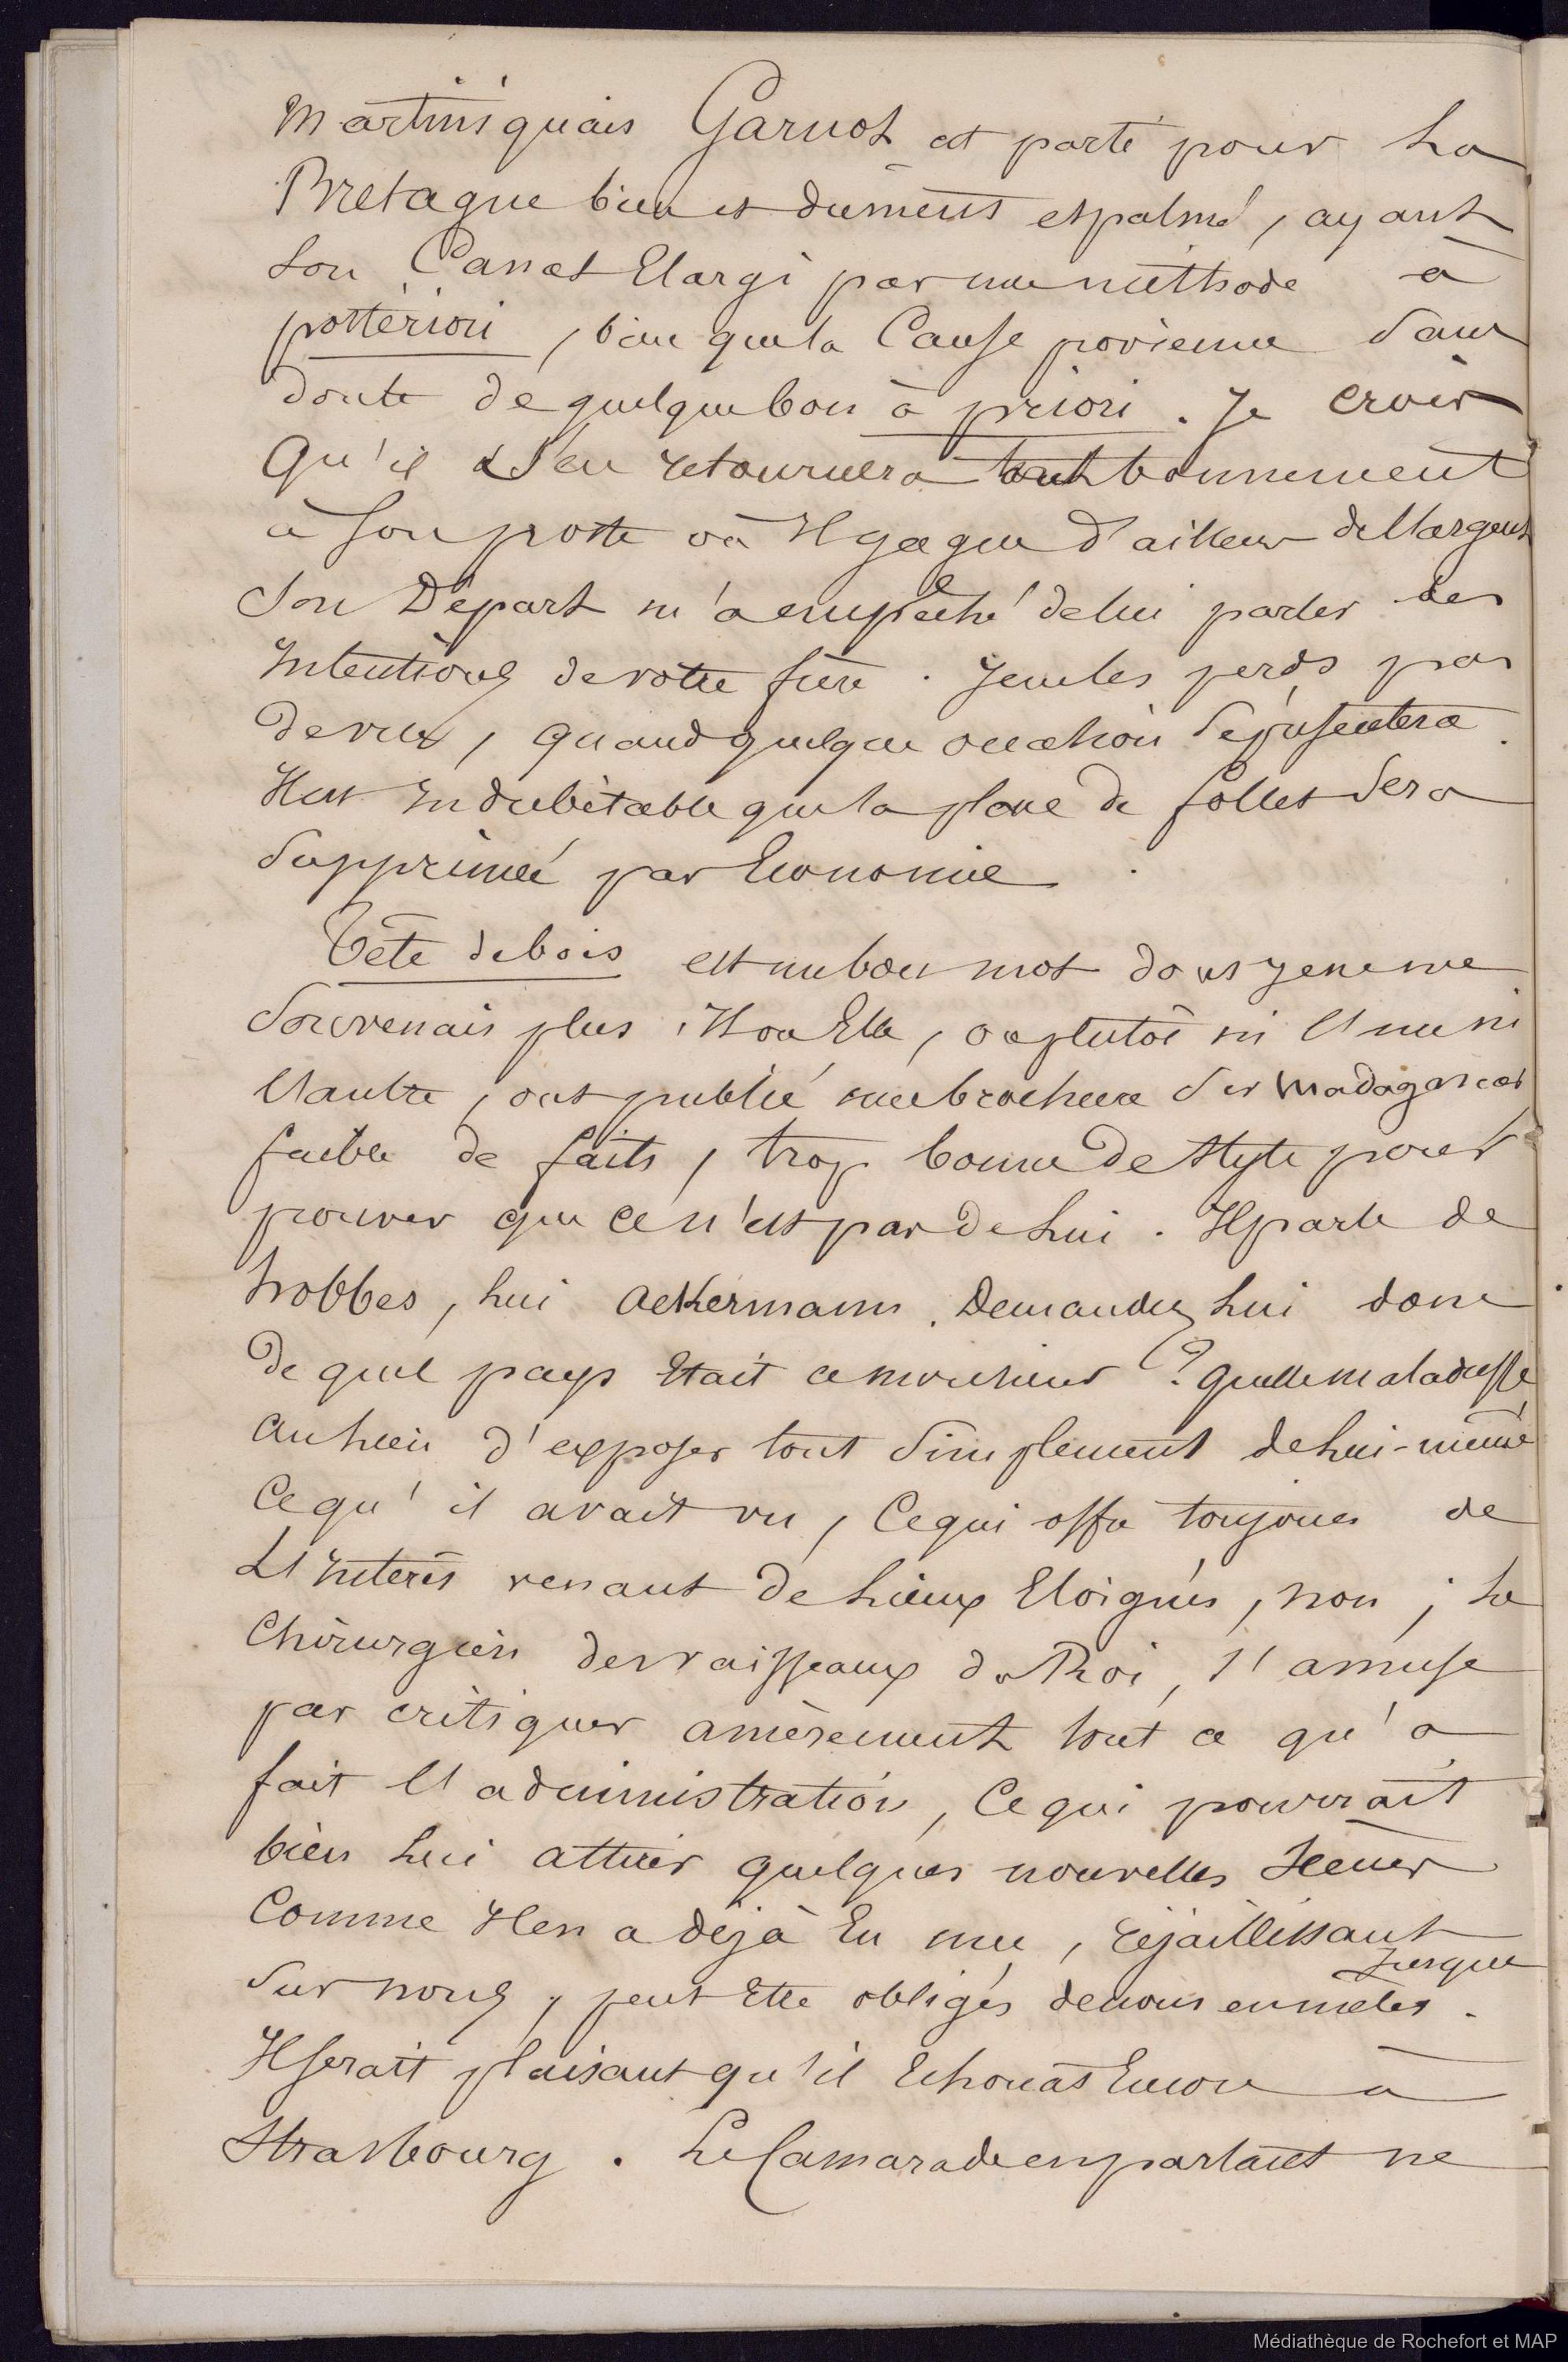 Martiniquais Garnot est parti pour La
Bretagne bien et dument espalmé, ayant
Son Canal Elargi par une méthode à
postériori, bien que la Cause provienne Sans
doute de quelque bon à priori. Je crois
Qu'il S'en retournera tout bonnement
à Son poste où Il gagne d'ailleurs de l'argent
Son Départ m'a empêché de lui parler des
Intentions de votre frère. Je ne les perds pas
de vue, quand quelque occasion Se présentera.
Il est Indubitable que la place de follet Sera
Supprimée par Economie.
Tête de bois est un bon mot dont je ne me
Souvenais plus. Il ou Elle, ou plutôt ni l'un ni
l'autre, ont publié une brochure Sur Madagascar
faible de faits, trop bonne de Style pour
prouver que ce n'est pas de Lui. Il parle de
hobbes, Lui Ackermann. Demandez Lui donc
de quel pays Etait ce monsieur ? quelle maladresse
au Lieu d'exposer tout Simplement de Lui-même
Ce qu'il avait vu, Ce qui offre toujours de
L'Intérêt venant de Lieux Eloignés, non ; Le
Chirurgien des vaisseaux du Roi, s'amuse
par critiquer amèrement tout ce qu'a
fait l'administration, Ce qui pourrait
bien Lui attirer quelques nouvelles
Comme Il en a déjà Eu une, rejaillissant Jusque
Sur nous, peut Etre obligés de nous en mêler.
Il serait plaisant qu'il Echouat Encore à
Strasbourg. Le Camarade en partant ne
Médiathèque de Rochefort et MAP